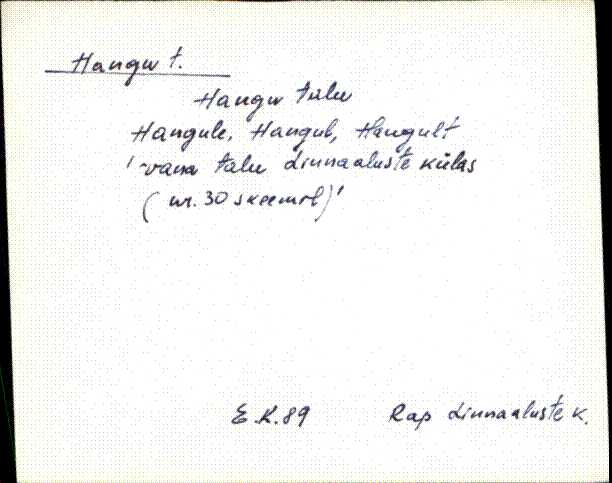 Hangu t.
Hangu talu
Hangule, Hangul, Hangult
'vana talu Linnaaluste külas
(nr. 30 skeemil)'
E.K.89 Rap Linnaaluste k.